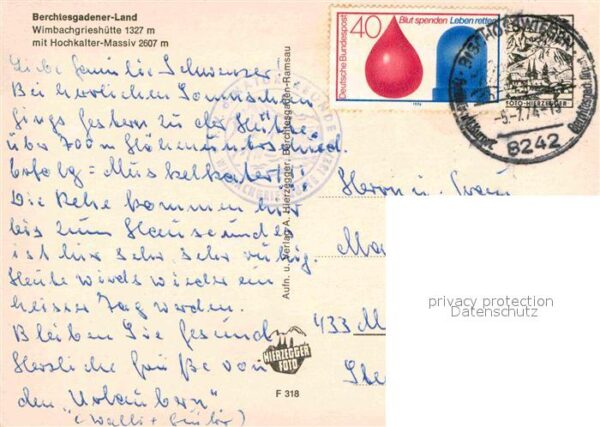 Berchtesgadener-Land
Wimbachgrieshütte 1327 m
mit Hochkalter-Massiv 2607 m
Liebe Familie
Bei herrlichem Sonnenschein
gings gestern zu der Hütte.
über 700 m Höhenunterschied.
Erfolg = Muskelkater!
Die Rehe kommen hier
bis zum Haus und es
ist hier sehr, sehr ruhig.
Heute wird's wieder ein
heisser Tag werden.
Bleiben Sie gesund
Herzliche Grüße von
den "Urlaubern"
(Walli +
Aufn. u. Verlag A. Hierzegger, Berchtesgaden-Ramsau
HIERZEGGER
FOTO
F 318
Deutsche Bundespost
40
Blut spenden Leben retten
1974
FOTO-HIERZEGGER
BISCHOFSWIESEN
-5.-7.74-13
8242
Herrn u. Frau
433 M
privacy protection
Datenschutz